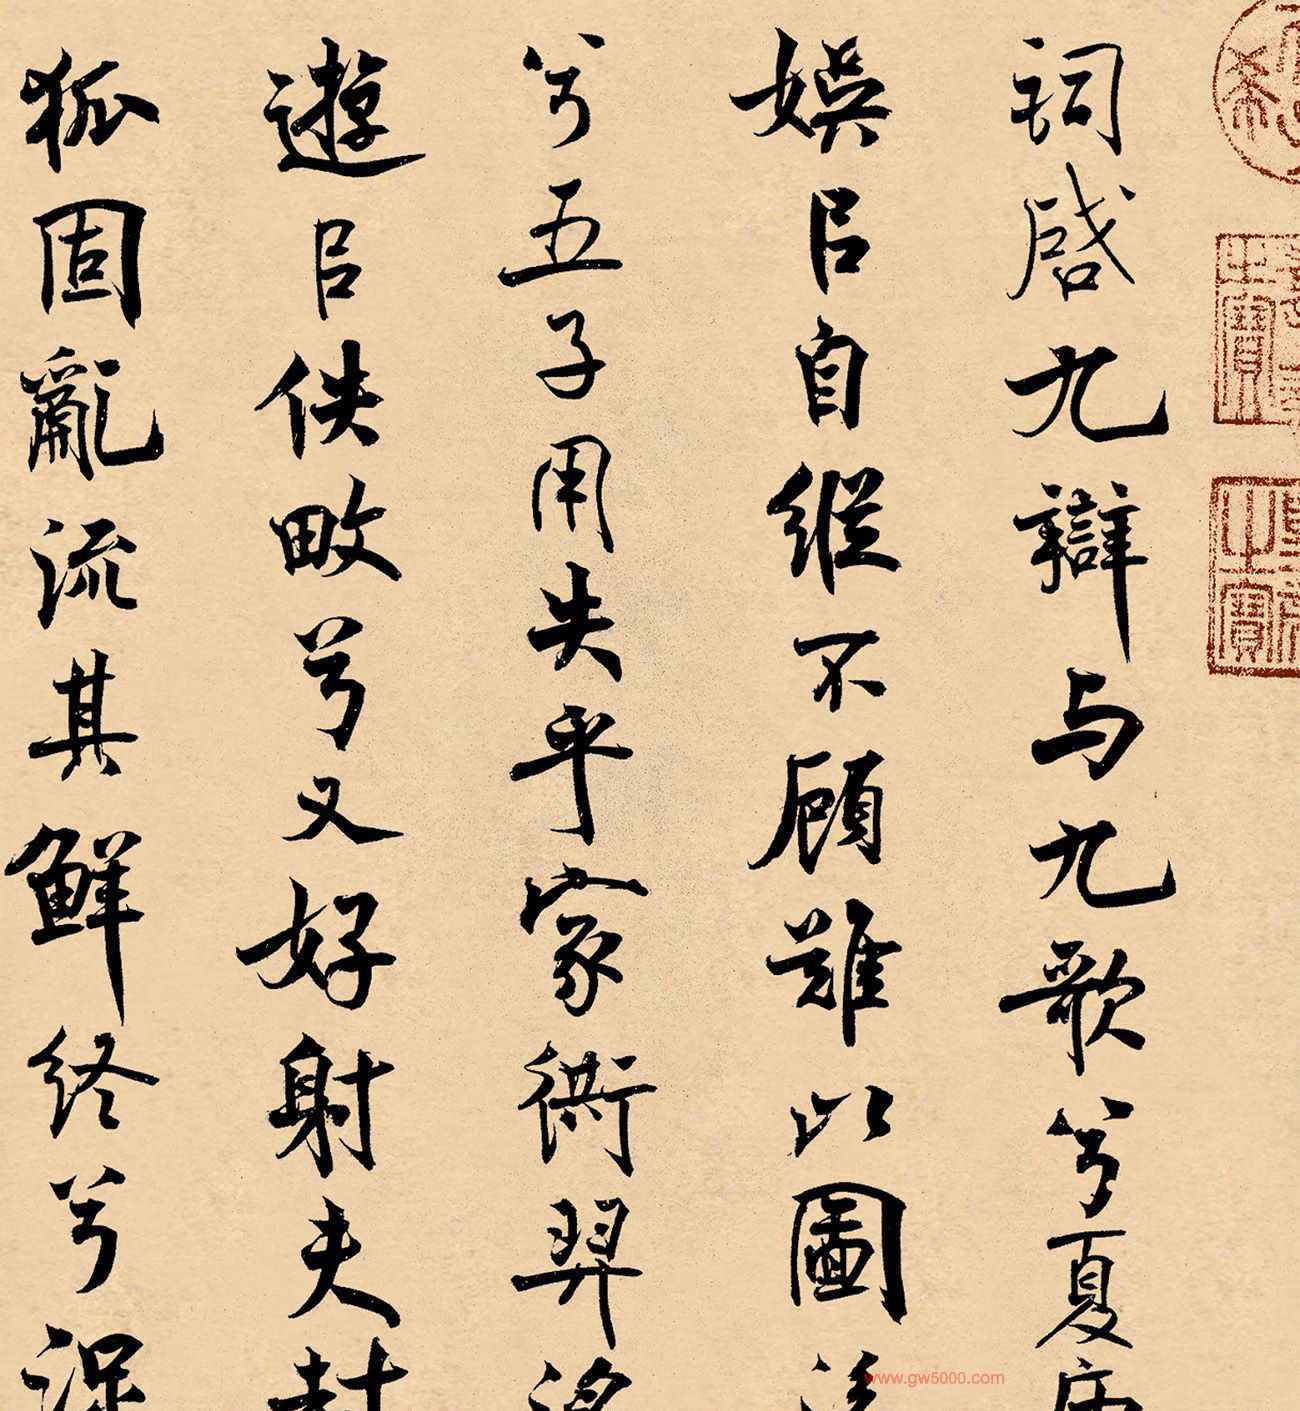 詞啓九辯与九歌兮夏康
娛㠯自縱不顧難以圖後
兮五子用失乎家衖羿淫
遊㠯佚畋兮又好射夫封
狐固亂流其鮮終兮浞
之寶
之寶
www.gw5000.com